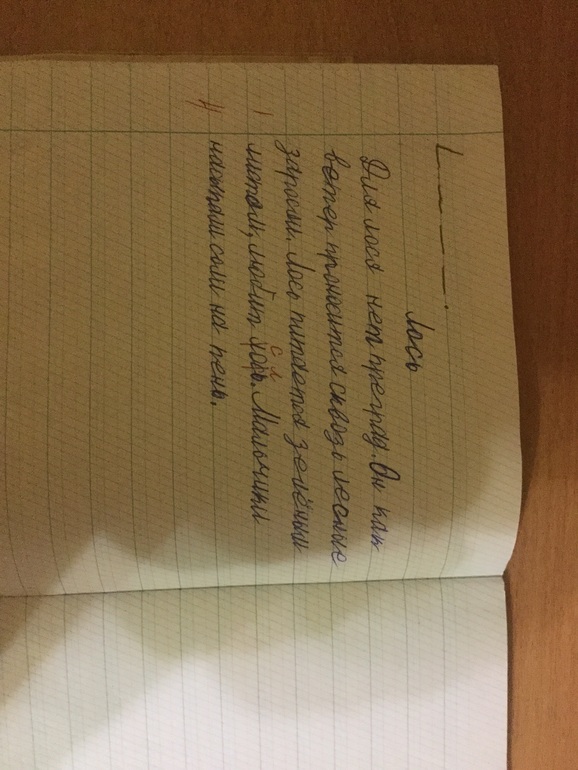 Лось
Для лося нет преград. Он как
ветер проносится сквозь лесные
заросли. Лось питается зелёными
листами, любит соль. Мальчики
насыпали соли на пень.